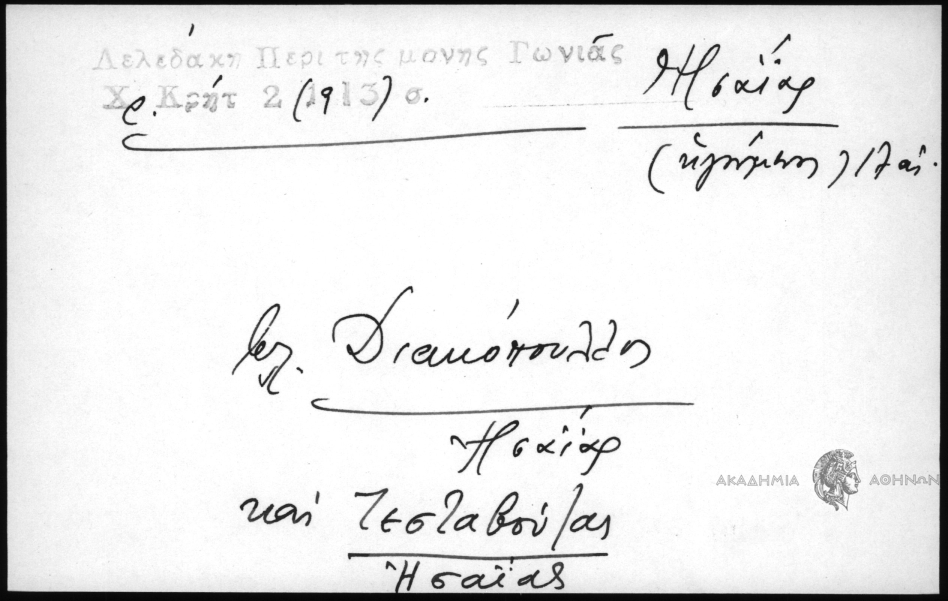 Λελεδάκη Περι της μονης Γωνιάς
Χ. Κρήτ 2 (1913) σ.
Ἠσαΐας
(ἡγούμενος) 17 αἰ.
βλ. Διακόπουλλος
Ἠσαΐας
καί Τεσταβούζας
Ἠσαΐας
ΑΚΑΔΗΜΙΑ ΑΘΗΝΩΝ